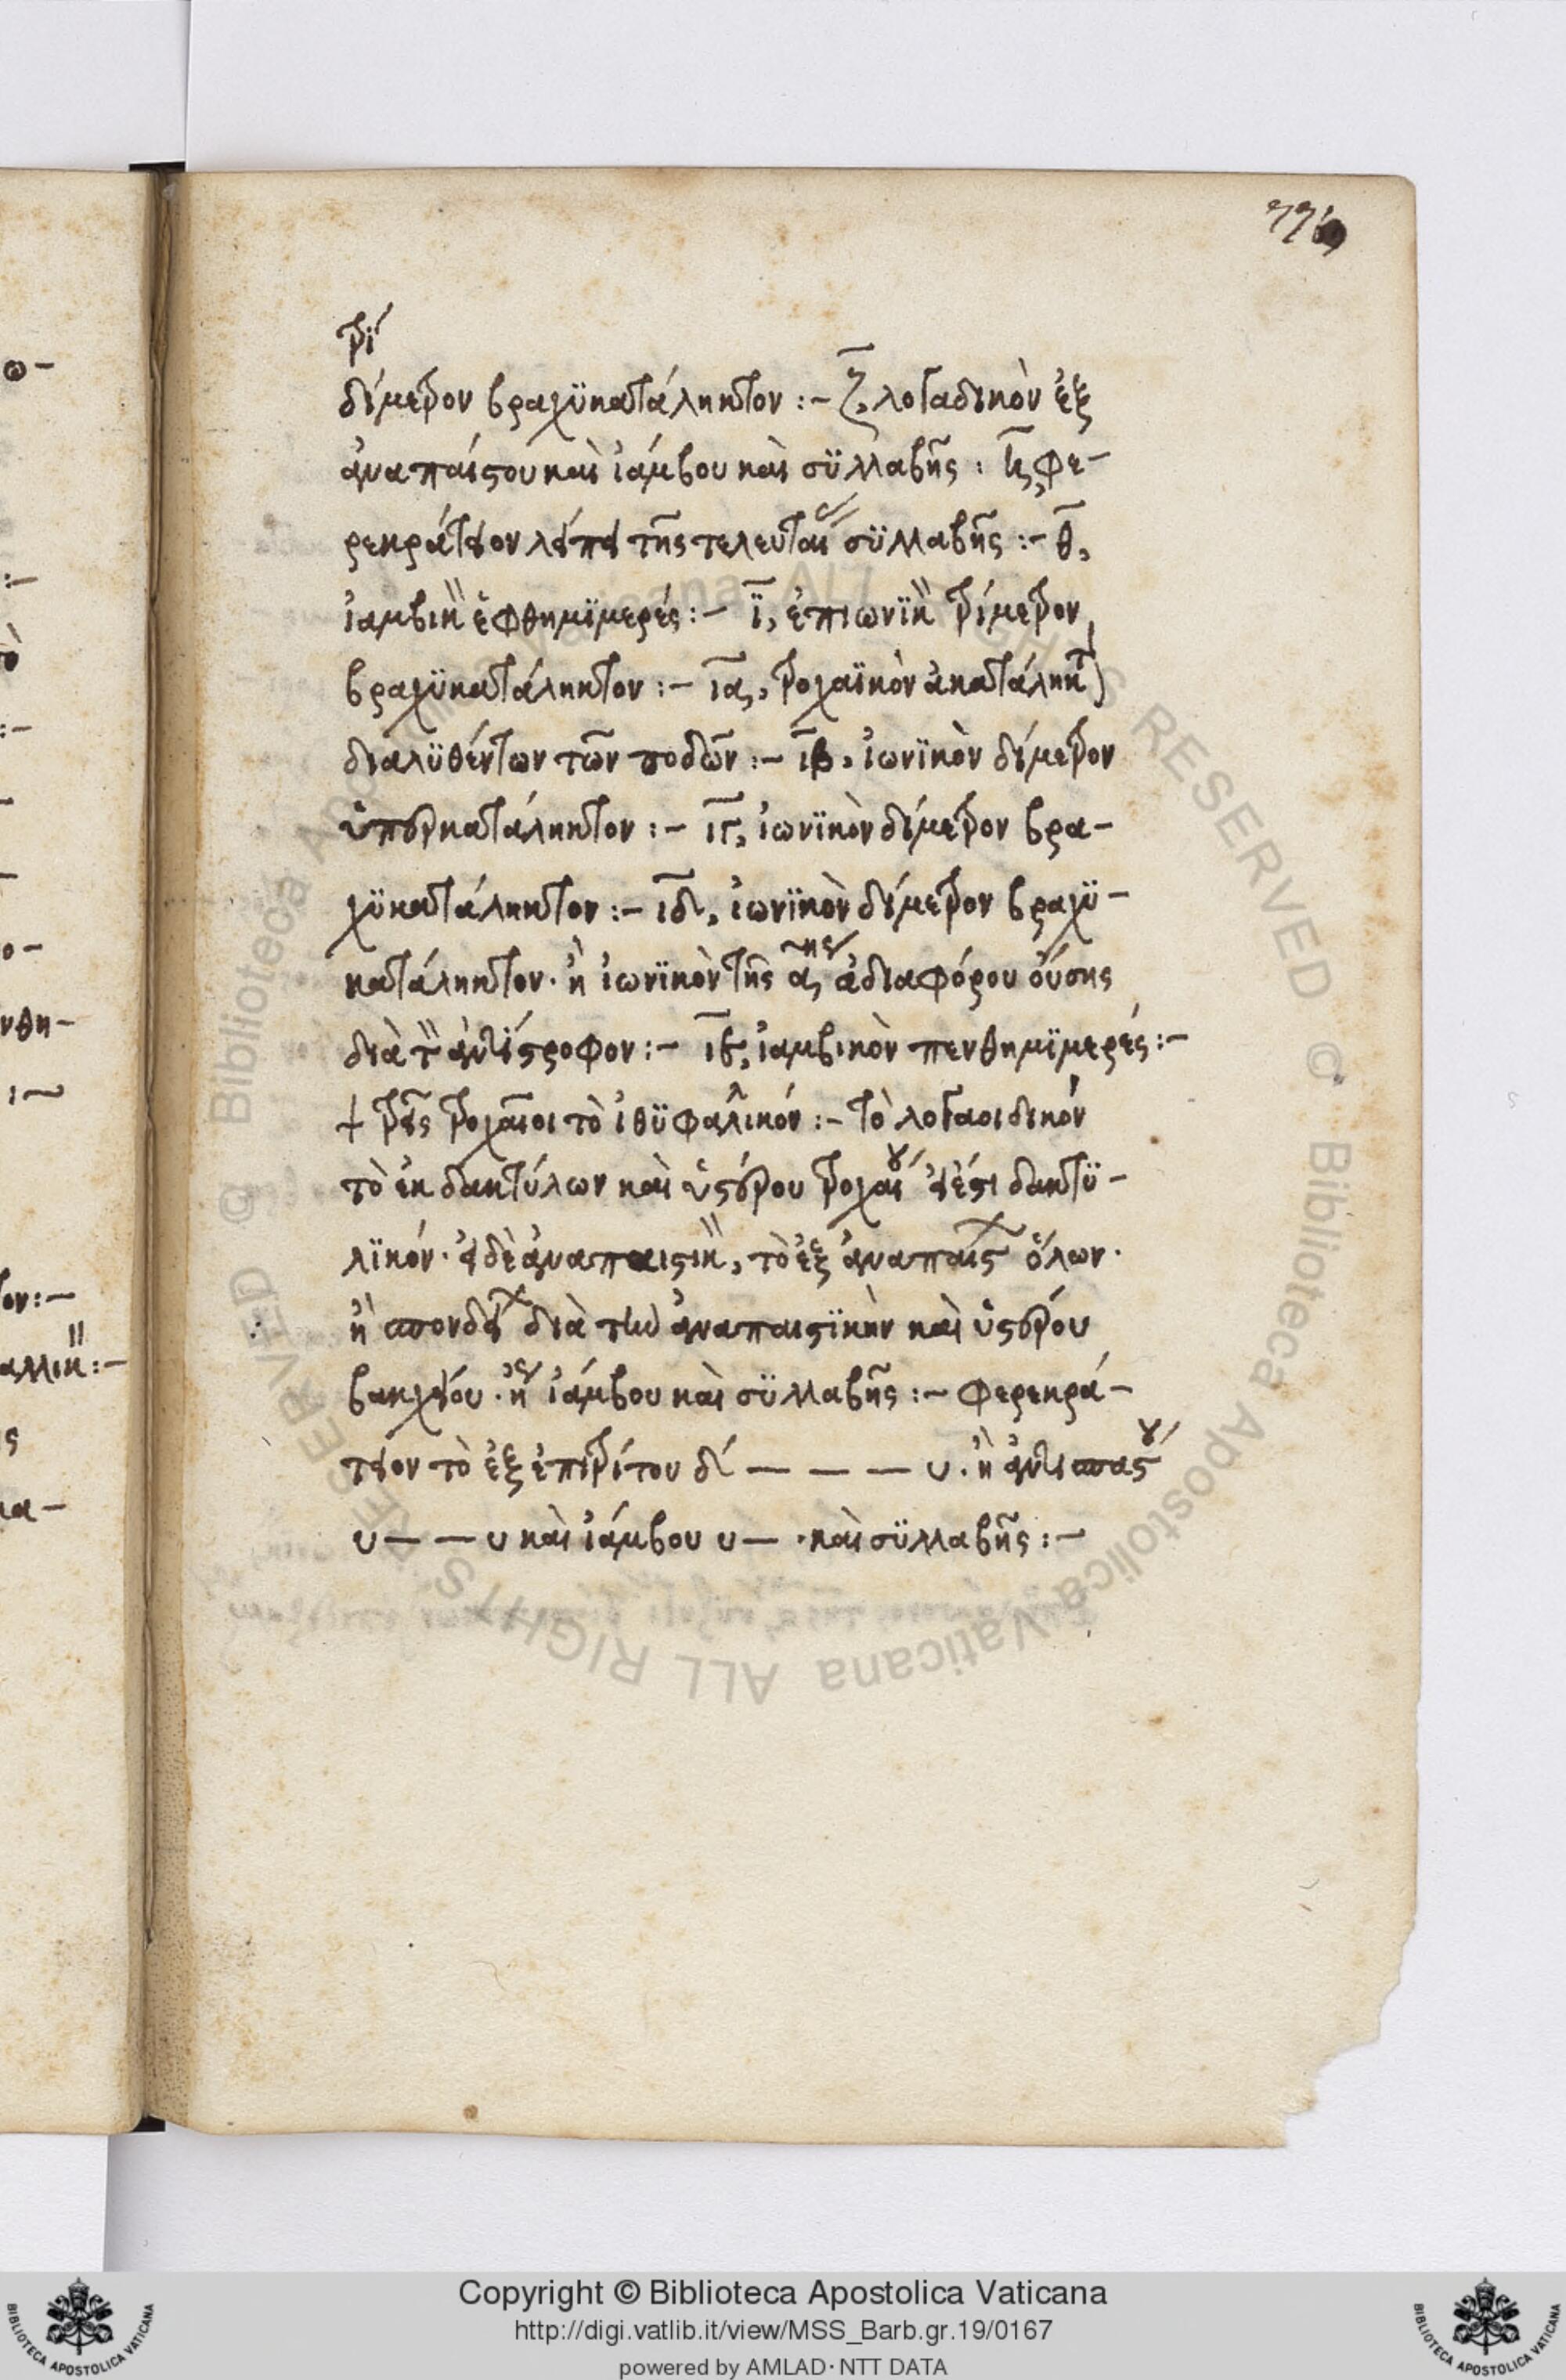 776
τρί
δίμετρον βραχϋκατάληκτον :- ζ, λογαδικὸν ἐξ
ἀναπαίστου καὶ ἰάμβου καὶ σϋλλαβῆς : η, φε-
ρεκράτειον λείπει τῆς τελευταί συλλαβῆς :- θ,
ἰαμβικ ἑφθημϊμερές :- ϊ, ἐπιωνϊκ τρίμετρον
βραχϋκατάληκτον :- ια, τροχαϊκὸν ἀκατάληκτ
διαλϋθέντων τῶν ποδῶν :- ιβ, ἰωνϊκὸν δίμετρον
ὑπερκατάληκτον :- ιγ, ἰωνϊκὸν δίμετρον βρα-
χϋκατάληκτον :- ιδ, ἰωνϊκὸν δίμετρον βραχϋ-
κατάληκτον · ἢ ἰωνϊκὸν τῆς α ης ἀδιαφόρου οὔσης
διὰ τ ἀντίστροφον :- ιε, ἰαμβικὸν πενθημϊμερές :-
+ τρεῖς τροχαῖοι τὸ ἰθϋφαλλικόν :- τὸ λογαοιδικόν
τὸ ἐκ δακτύλων καὶ ὑστέρου τροχαίου εἰ ἔστι δακτϋ-
λϊκόν · εἰ δὲ ἀναπαιστικ, τὸ ἐξ ἀναπαίστ ὅλων ·
ἢ σπονδεί διὰ τὴν ἀναπαιστϊκὴν καὶ ὑστέρου
βακχείου · ἢ ἰάμβου καὶ σϋλλαβῆς :- φερεκρά-
τειον τὸ ἐξ ἐπιτρίτου δ — — — υ · ἢ ἀντισπάστου
υ — — υ καὶ ἰάμβου υ — · καὶ σϋλλαβῆς :-
Copyright © Biblioteca Apostolica Vaticana
http://digi.vatlib.it/view/MSS_Barb.gr.19/0167
powered by AMLAD · NTT DATA